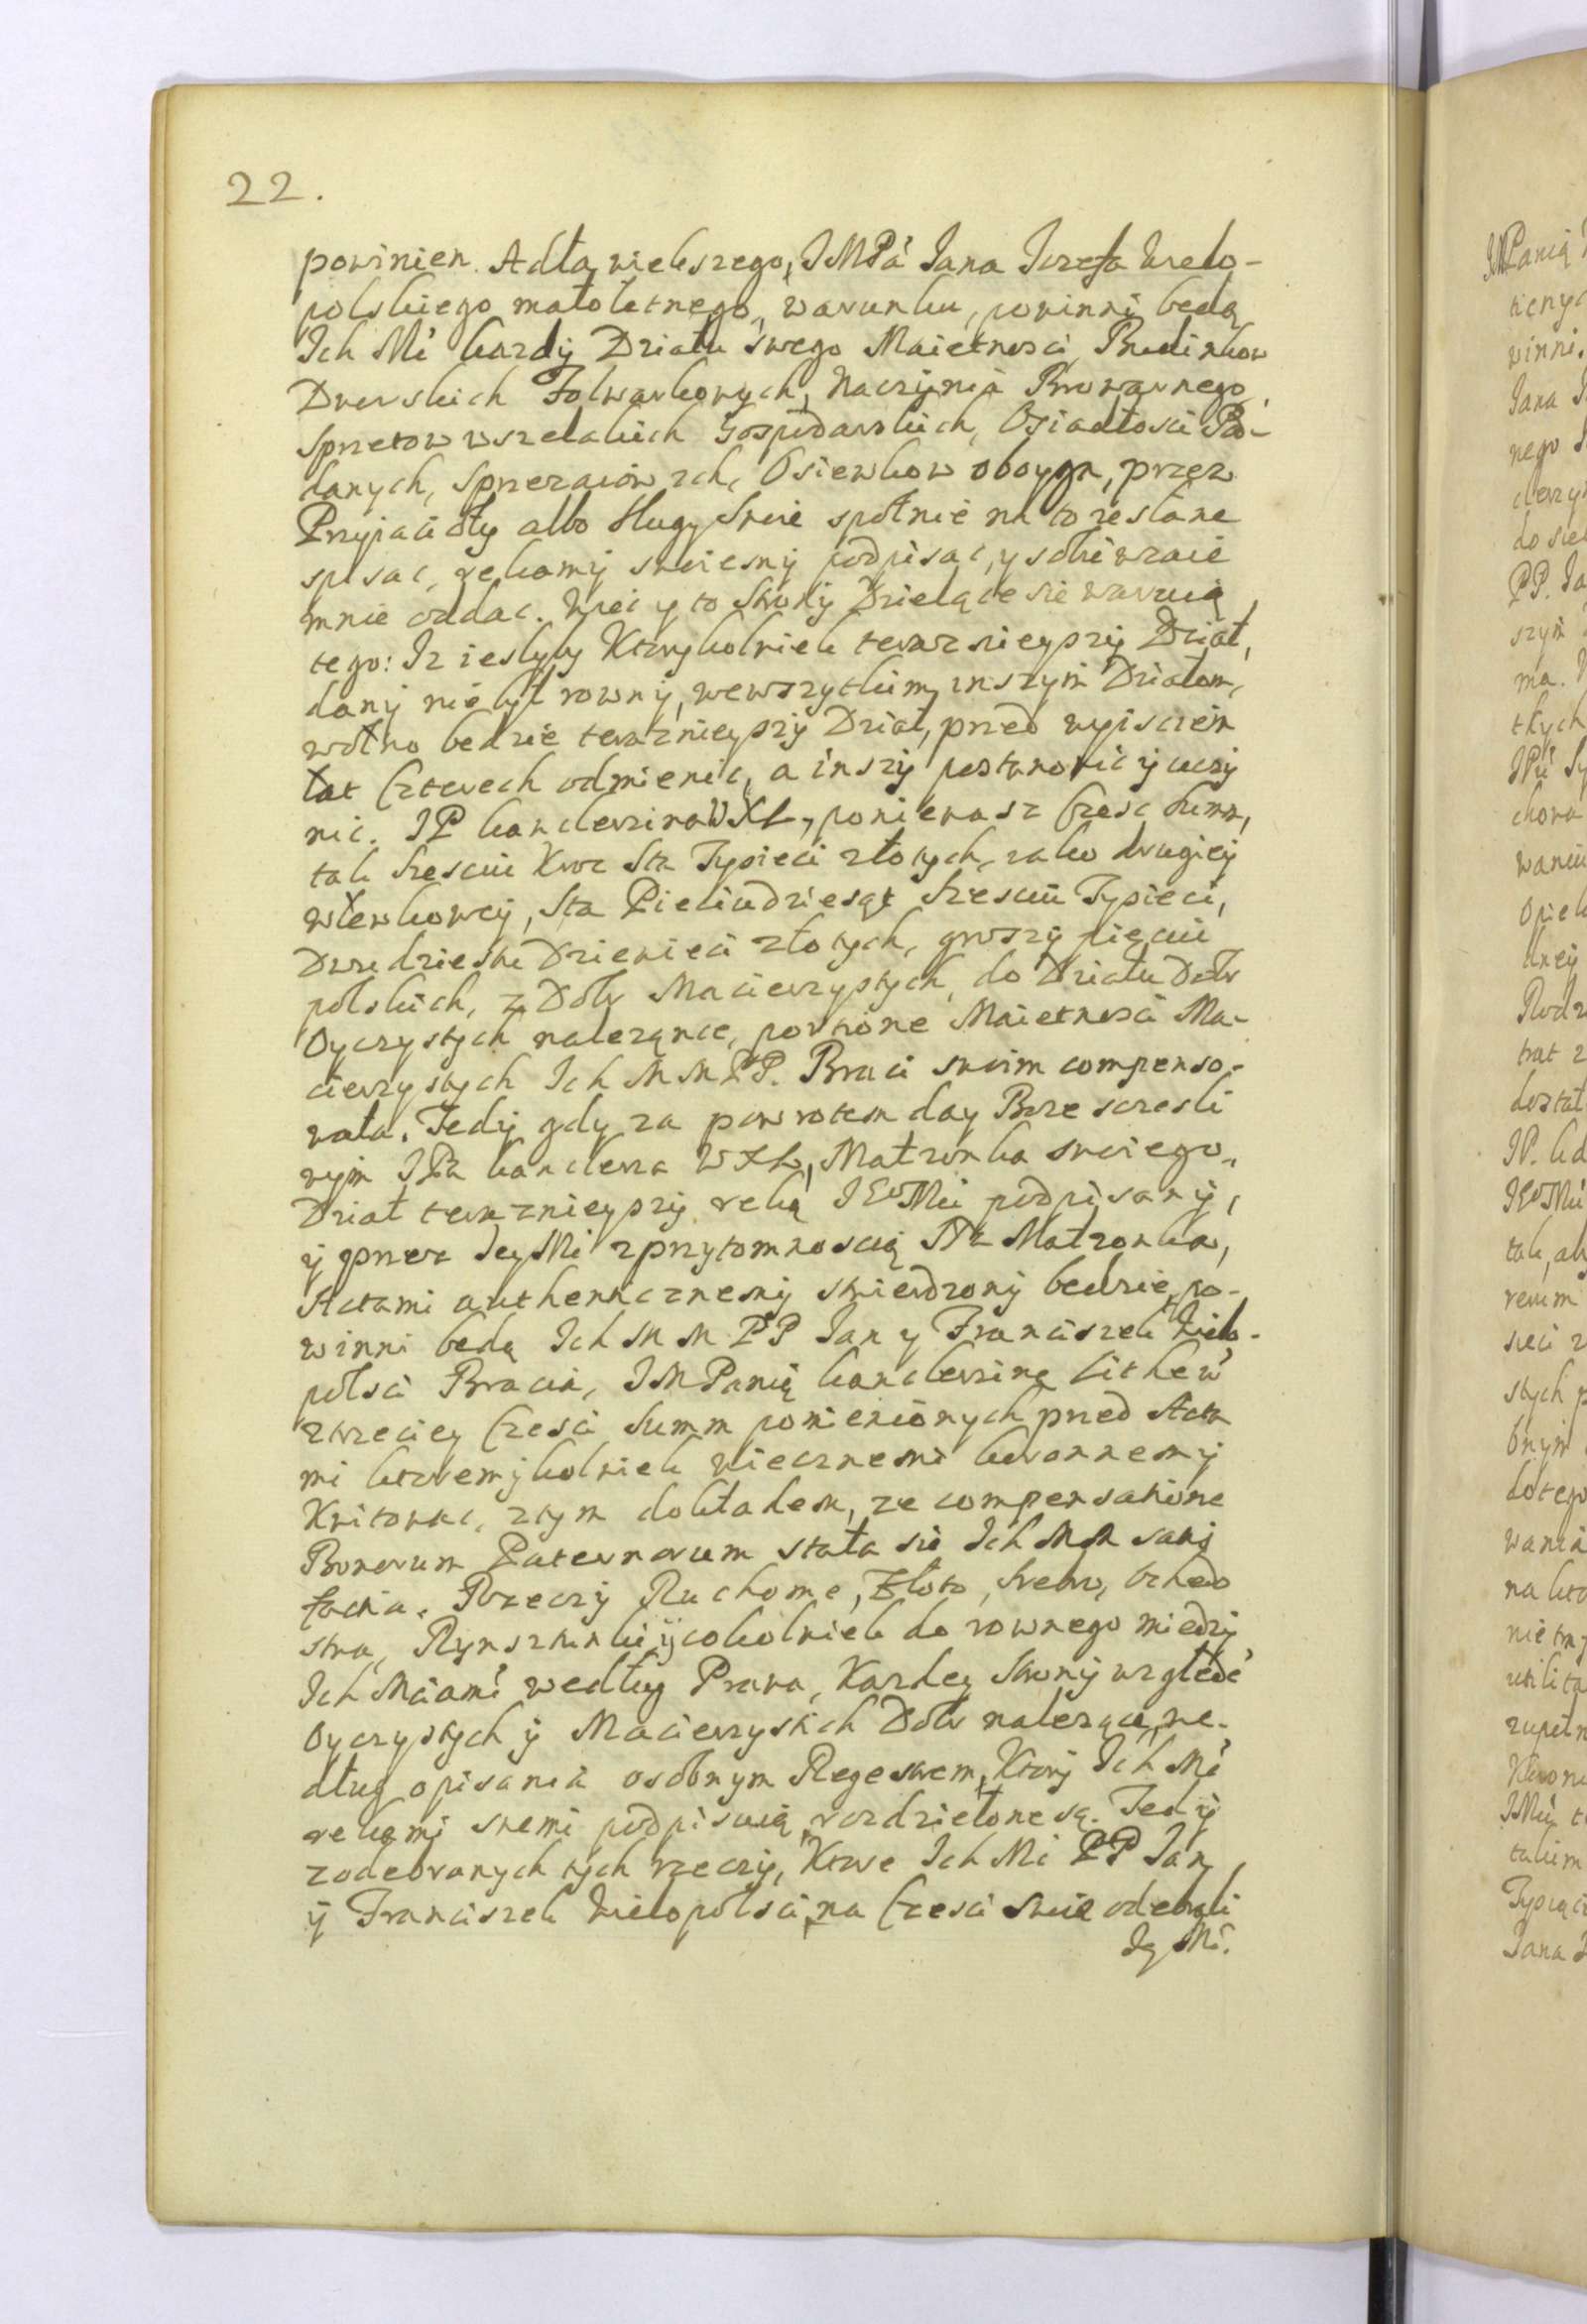 22.
powinien. Adla wiekszego, JMPá Jana Jozefa Wielo-
polskiego małoletnego, warunku, powinni będą
Ich Mć kazdÿ Działu swego Maietnosci, Budinkow
Dworskich Folwarkowych, Naczÿnia Browarnego,
Sprzetow wszelakich Gospodarskich, Osiadłosci Pod-
danych, Sprzezaiow ich, Osiewkow oboyga, przez
Przyjacioły albo Slugy Swoie społnie na to zesłane
spisac, rekamÿ swoiemÿ podpisac, y sobie wzaie
mnie oddac. Wiec y to Stronÿ Dzieląće sie waruią
tego: Iz iesliby Ktorykolwiek terazniejszÿ Dział,
danÿ nie był rownÿ, wewszytkim, inszym Działom,
wolno bedzie terazniejszÿ Dział, przed wyisciem
Lat Czterech odmienic, a inszÿ postanowic ÿ uczÿ
nic. JP kanclerzina WXL, poniewasz Czesc Summ,
tak Szesciu Kroc Sta Tysieci złotych, iako drugieÿ
wlewkoweÿ, Sta Piecudziesąt Szesciu Tysieci,
Dwudziestu Dziewieci złotych, groszÿ pięciu
polskich, z Dobr Macierzystych, do Działu Dobr
Oyczystych nalezące, powrone Maietnosci Ma-
cierzystych Ich M M PP. Braci swoim compenso-
wała. Tedÿ gdy za powrotem day Boze szczesli
wÿm JPa kanclerza WXL, Małzonka swoiego,
Dział terazniejszÿ reką JEoMci podpisanÿ,
ÿ przez JeyMć zprzytomnoscią Pa Małzonka,
Actami authenticznemÿ stwierdzonÿ bedzie, po-
winni będą Ich M M PP Jan y Franciszek Wielo-
polsci Bracia, JMPanią kanclerzinę Lithew
ztrzeciey Czesci Summ pomienionych przed Acta
mi ktoremÿkolwiek wiecznemi koronnemÿ
Kwitowac, ztym dokładem, ze compensatione
Bonorum Paternorum stała sie Ich M M satis
factia. Rzeczÿ Ruchome, Złoto, Srebro, Ochedo
stwa, Rynsztunki ÿ cokolwiek do rownego miedzÿ
Ich Mciami według Prawa, Kazdey Stronÿ względē
Oyczystych ÿ Macierzystich Dobr nalezące, we-
dług opisania osobnym Regestrem, Ktorÿ Ich Mć
rekamj swemi podpisuią, rozdzielone są. Tedÿ
zodebranych tych rzeczÿ, Ktore Ich Mć PP Jan
ÿ Franciszek Wielopolsci, na Czesci swoie odebrali
Ich Mć.